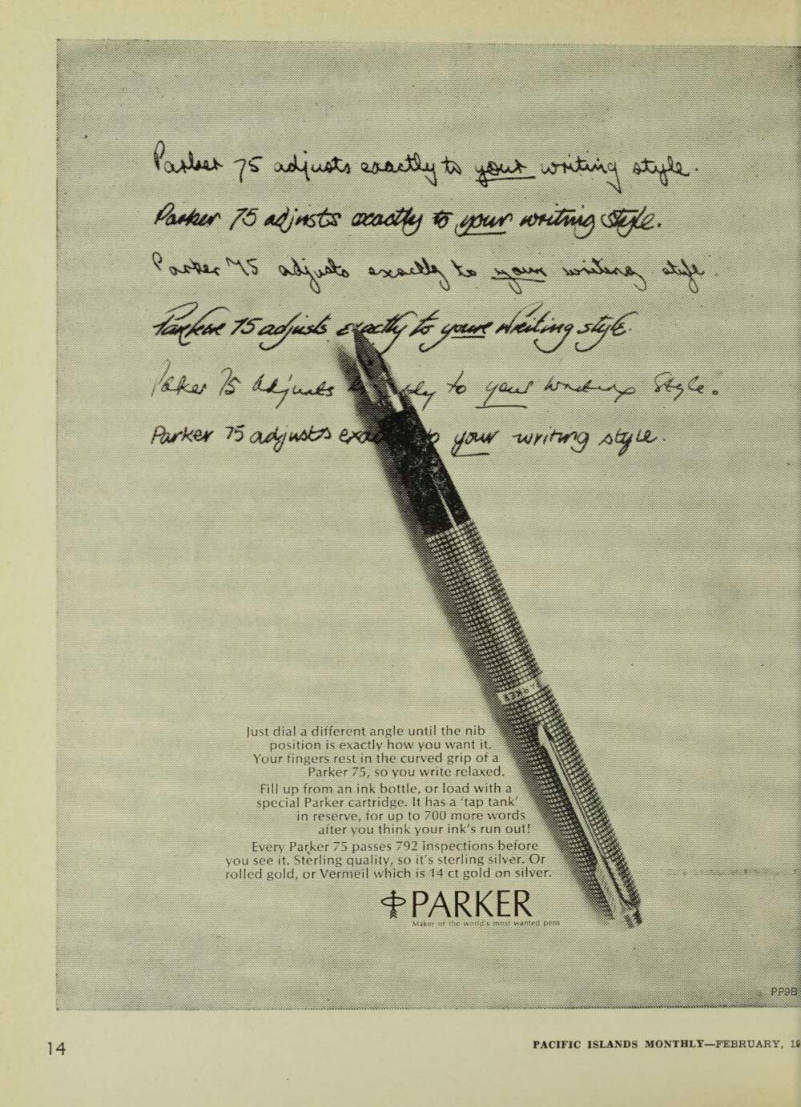 Parker 75 adjusts exactly to your writing style.
Parker 75 adjusts exactly to your writing style.
Parker 75 adjusts exactly to your writing style.
Parker 75 adjusts exactly to your writing style.
Parker 75 adjusts to your writing style.
Parker 75 adjusts to your writing style.
PARKER
Just dial a different angle until the nib
position is exactly how you want it.
Your fingers rest in the curved grip of a
Parker 75, so you write relaxed.
Fill up from an ink bottle, or load with a
special Parker cartridge. It has a 'tap tank'
in reserve, for up to 700 more words
after you think your ink's run out!
Every Parker 75 passes 792 inspections before
you see it. Sterling quality, so it's sterling silver. Or
rolled gold, or Vermeil which is 14 ct gold on silver.
PARKER
Maker of the world's most wanted pens
PP9B
14
PACIFIC ISLANDS MONTHLY—FEBRUARY, 19